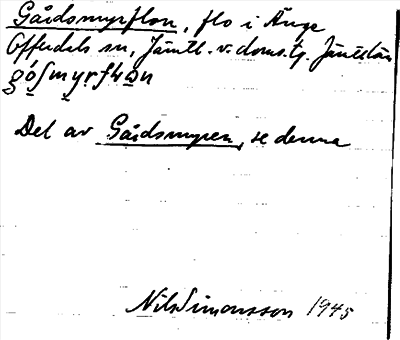 Gårdsmyrflon, flo i Ånge
Offerdals sn, Jämtl. v. doms. tg. Jämtlän
Del av Gårdsmyren, se denna
Nils Simonsson 1945